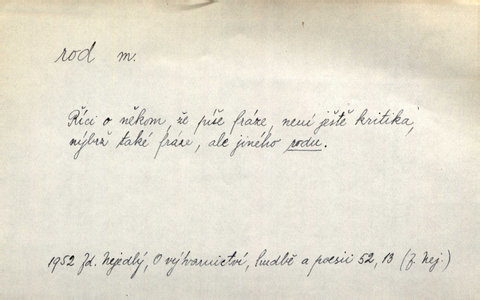 rod m.
Říci o někom že píše fráze, není ještě kritika,
nýbrž také fráze, ale jiného rodu.
1952 Zd. Nejedlý, O výtvarnictví, hudbě a poesii 52, 13 (Z. Nej.)